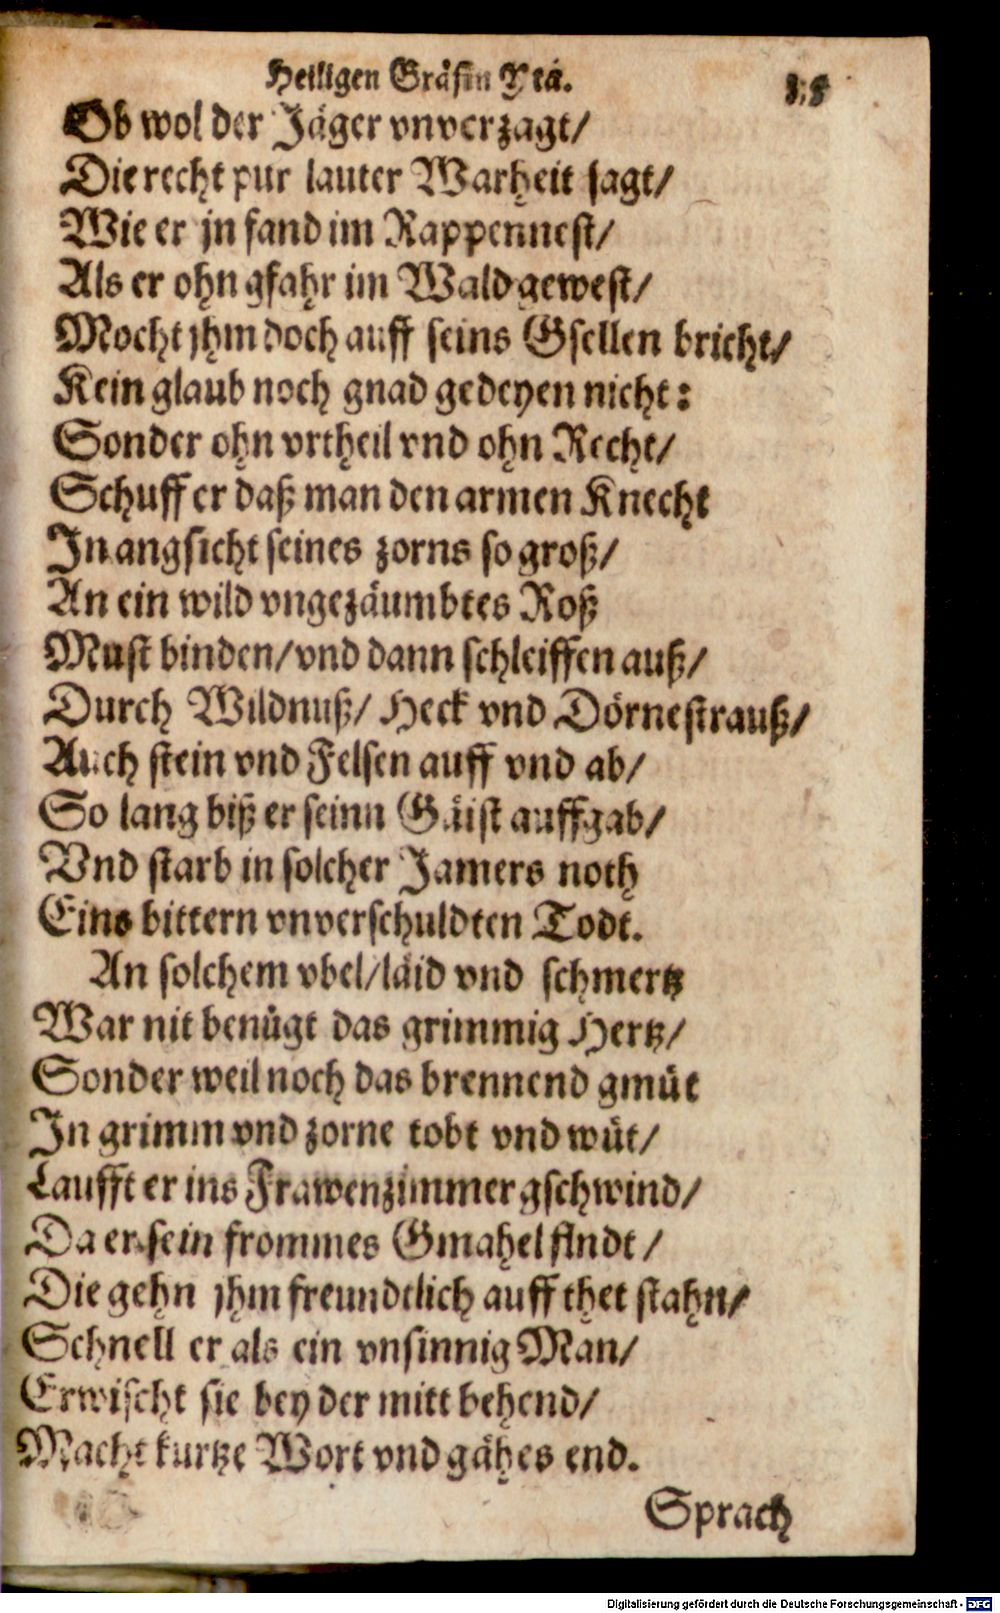 Heiligen Gräfin Yta.
Ob wol der Jäger vnverzagt/
Die recht pur lauter Warheit sagt/
Wie er jn fand im Rappennest/
Als er ohn gfahr im Wald gewest/
Mocht jhm doch auff seins Gsellen bricht/
Kein glaub noch gnad gedeyen nicht:
Sonder ohn vrtheil vnd ohn Recht/
Schuff er daß man den armen Knecht
In angsicht seines zorns so groß/
An ein wild vngezäumbtes Roß
Must binden/vnd dann schleiffen auß/
Durch Wildnuß/ Heck vnd Dörnestrauß/
Auch stein vnd Felsen auff vnd ab/
So lang biß er seinn Gäist auffgab/
Vnd starb in solcher Jamers noth
Eins bittern vnverschuldten Todt.
An solchem vbel/läid vnd schmertz
War nit benügt das grimmig Hertz/
Sonder weil noch das brennend gmüt
In grimm vnd zorne tobt vnd wüt/
Laufft er ins Frawenzimmer gschwind/
Da er sein frommes Gmahel findt/
Die gehn jhm freundtlich auff thet stahn/
Schnell er als ein vnsinnig Man/
Erwischt sie bey der mitt behend/
Macht kurtze Wort vnd gähes end.
Sprach
Digitalisierung gefördert durch die Deutsche Forschungsgemeinschaft - DFG